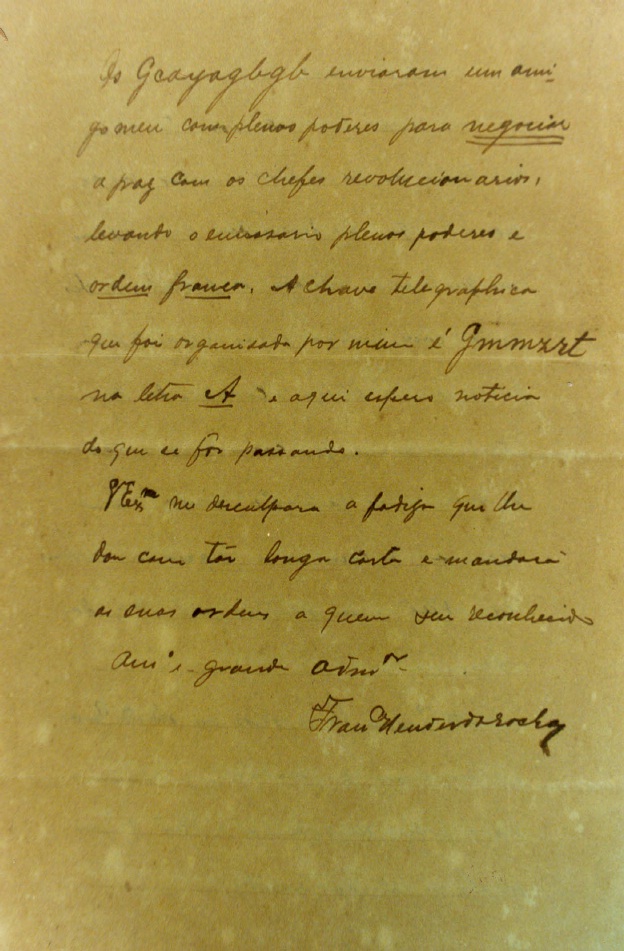 Os Gcayagbgb enviaram um ami-
go meu com plenos poderes para negociar
a paz com os chefes revolucionarios,
levando o emissario plenos poderes e
ordem franca. A chave telegraphica
que foi organisada por mim é Gmmzrt
na letra A e aqui espero noticia
do que se fôr passando.
VExmª me desculpara a fadiga que lhe
dou com tão longa carta e mandará
as suas ordens a quem seu reconhecido
Amº e grande Admor
Franco Mendes da Rocha